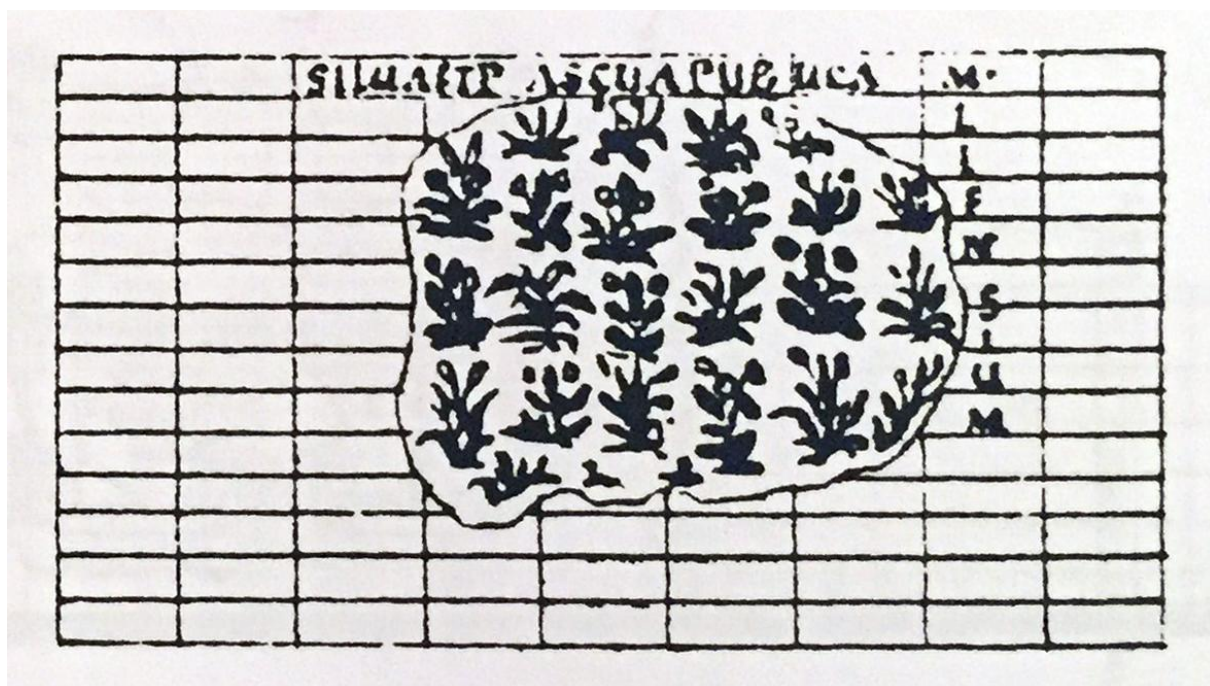 SILUAETP ASCUAPUBLICA
M·LIENSIUM